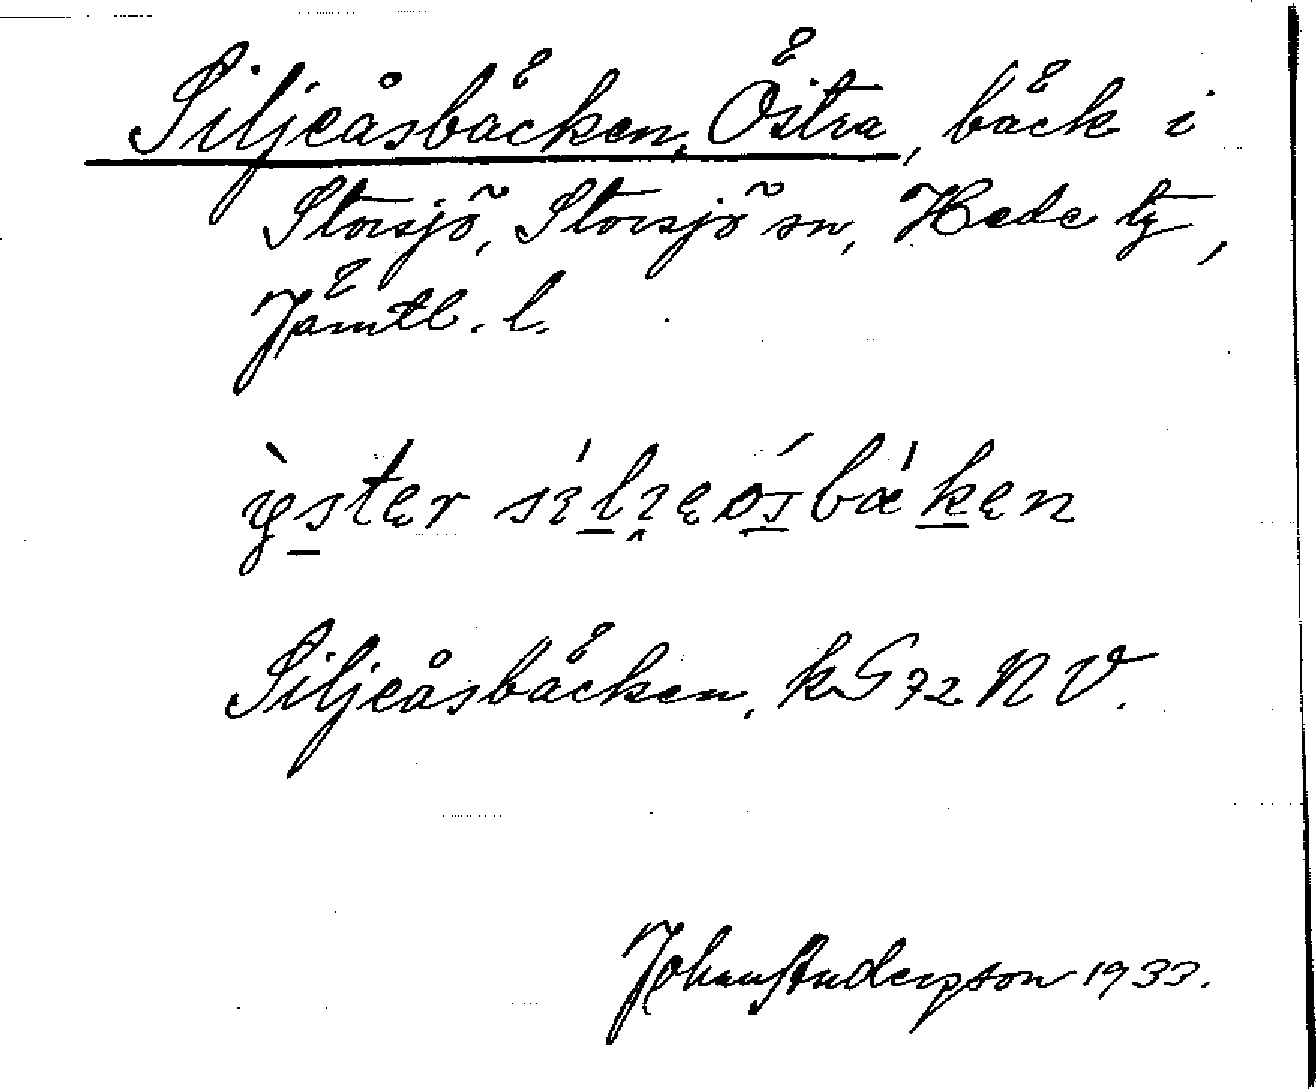 Siljeåsbäcken, Östra, bäck i
Storsjö, Storsjö sn, Hede tg,
Jämtl. l.
Siljeåsbäcken, kG 72 NV.
Johan Anderson 1933.